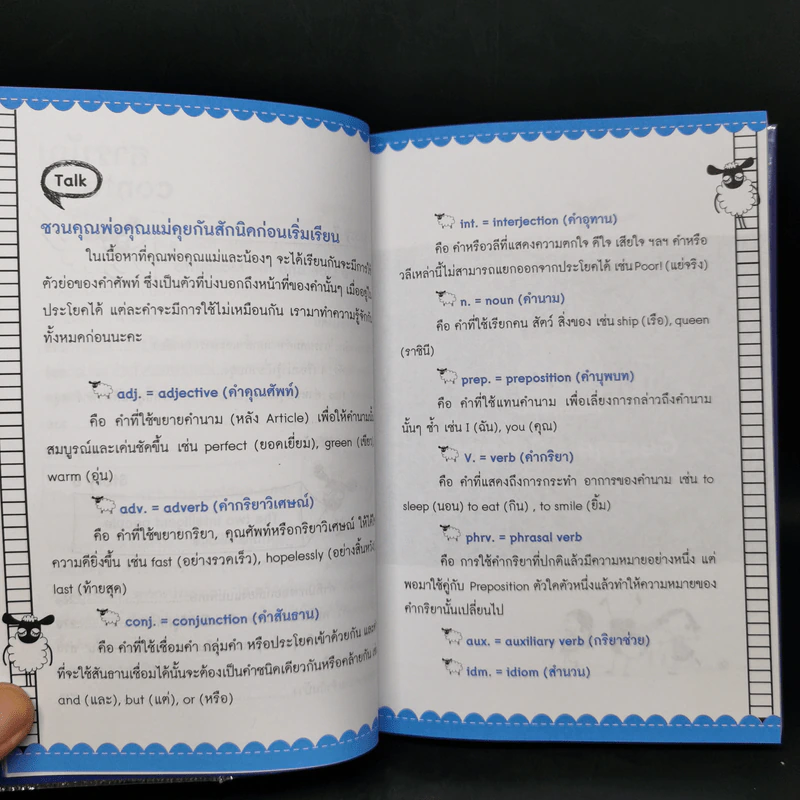 Talk
ชวนคุณพ่อคุณแม่คุยกันสักนิดก่อนเริ่มเรียน
ในเนื้อหาที่คุณพ่อคุณแม่และน้องๆ จะได้เรียนกันจะมีการใช้
ตัวย่อของคำศัพท์ ซึ่งเป็นตัวที่บ่งบอกถึงหน้าที่ของคำนั้นๆ เมื่ออยู่ใน
ประโยคได้ แต่ละคำจะมีการใช้ไม่เหมือนกัน เรามาทำความรู้จักกับ
ทั้งหมดก่อนนะคะ
adj. = adjective (คำคุณศัพท์)
คือ คำที่ใช้ขยายคำนาม (หลัง Article) เพื่อให้คำนามนั้น
สมบูรณ์และเด่นชัดขึ้น เช่น perfect (ยอดเยี่ยม), green (เขียว)
warm (อุ่น)
adv. = adverb (คำกริยาวิเศษณ์)
คือ คำที่ใช้ขยายกริยา, คุณศัพท์หรือกริยาวิเศษณ์ ให้ได้
ความดียิ่งขึ้น เช่น fast (อย่างรวดเร็ว), hopelessly (อย่างสิ้นหวัง)
last (ท้ายสุด)
conj. = conjunction (คำสันธาน)
คือ คำที่ใช้เชื่อมคำ กลุ่มคำ หรือประโยคเข้าด้วยกัน และ
ที่จะใช้สันธานเชื่อมได้นั้นจะต้องเป็นคำชนิดเดียวกันหรือคล้ายกัน
and (และ), but (แต่), or (หรือ)
int. = interjection (คำอุทาน)
คือ คำหรือวลีที่แสดงความตกใจ ดีใจ เสียใจ ฯลฯ คำหรือ
วลีเหล่านี้ไม่สามารถแยกออกจากประโยคได้ เช่น Poor! (แย่จริง)
n. = noun (คำนาม)
คือ คำที่ใช้เรียกคน สัตว์ สิ่งของ เช่น ship (เรือ), queen
(ราชินี)
prep. = preposition (คำบุพบท)
คือ คำที่ใช้แทนคำนาม เพื่อเลี่ยงการกล่าวถึงคำนาม
นั้นๆ ซ้ำ เช่น I (ฉัน), you (คุณ)
V. = verb (คำกริยา)
คือ คำที่แสดงถึงการกระทำ อาการของคำนาม เช่น to
sleep (นอน) to eat (กิน) , to smile (ยิ้ม)
phrv. = phrasal verb
คือ การใช้คำกริยาที่ปกติแล้วมีความหมายอย่างหนึ่ง แต่
พอมาใช้คู่กับ Preposition ตัวใดตัวหนึ่งแล้วทำให้ความหมายของ
คำกริยานั้นเปลี่ยนไป
aux. = auxiliary verb (กริยาช่วย)
idm. = idiom (สำนวน)